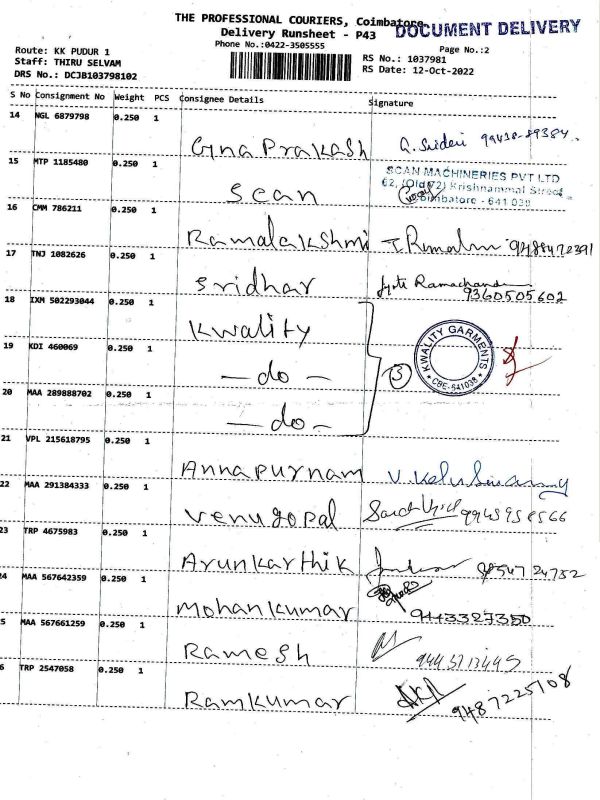 THE PROFESSIONAL COURIERS, Coimbatore
DOCUMENT DELIVERY
Delivery Runsheet - P43
Phone No.:0422-3505555
Page No.:2
Route: KK PUDUR 1
RS No.: 1037981
Staff: THIRU SELVAM
RS Date: 12-Oct-2022
DRS No.: DCJB103798102
S No Consignment No Weight PCS Consignee Details Signature
14 NGL 6879798 0.250 1
Gna Prakash G. Sridevi
15 MTP 1185480 0.250 1
SCAN MACHINERIES PVT LTD
62, (Old 72) Krishnammal Street
Coimbatore - 641 038
Scan
16 CMM 786211 0.250 1
Ramalakshmi
17 TNJ 1082626 0.250 1
Sridhar Jyoti Ramachandran
9360505602
18 IXM 502293044 0.250 1
Kwality
19 KDI 460069 0.250 1
KWALITY GARMENTS
* CBE-641038 *
3
- do -
20 MAA 289888702 0.250 1
- do -
21 VPL 215618795 0.250 1
Annapurnam
22 MAA 291384333 0.250 1
Venugopal
23 TRP 4675983 0.250 1
Arunkarthik
24 MAA 567642359 0.250 1
Mohankumar 9443327350
5 MAA 567661259 0.250 1
Ramesh
6 TRP 2547058 0.250 1
Ramkumar 9487225708